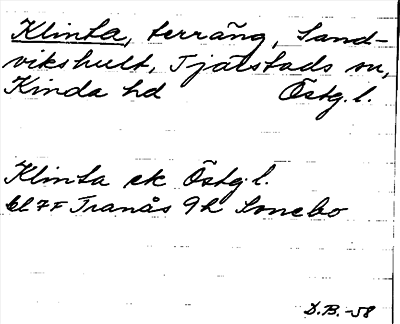 Klinta, terräng, Sand-
vikshult, Tjärstads sn,
Kinda hd Östg.l.
Klinta ek Östg.l.
bl 7F Tranås 9h Sonebo
D.B. -58